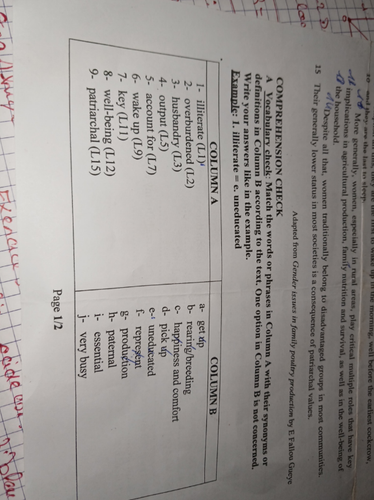 and they are the last to sleep.
More generally, women, especially in rural areas, play critical multiple roles that have key
implications in agricultural production, family nutrition and survival, as well as in the well-being of
the household.
Despite all that, women traditionally belong to disadvantaged groups in most communities.
15 Their generally lower status in most societies is a consequence of patriarchal values.
Adapted from Gender issues in family poultry production by E Fallou Gueye
COMPREHENSION CHECK
A Vocabulary check: Match the words or phrases in Column A with their synonyms or
definitions in Column B according to the text. One option in Column B is not concerned.
Write your answers like in the example.
Example: 1. illiterate = e. uneducated
COLUMN A
1- illiterate (L1)
2- overburdened (L2)
3- husbandry (L3)
4- output (L5)
5- account for (L7)
6- wake up (L9)
7- key (L11)
8- well-being (L12)
9- patriarchal (L15)
COLUMN B
a- get up
b- rearing/breeding
c- happiness and comfort
d- pick up
e- uneducated
f- represent
g- production
h- paternal
i- essential
j- very busy
Page 1/2